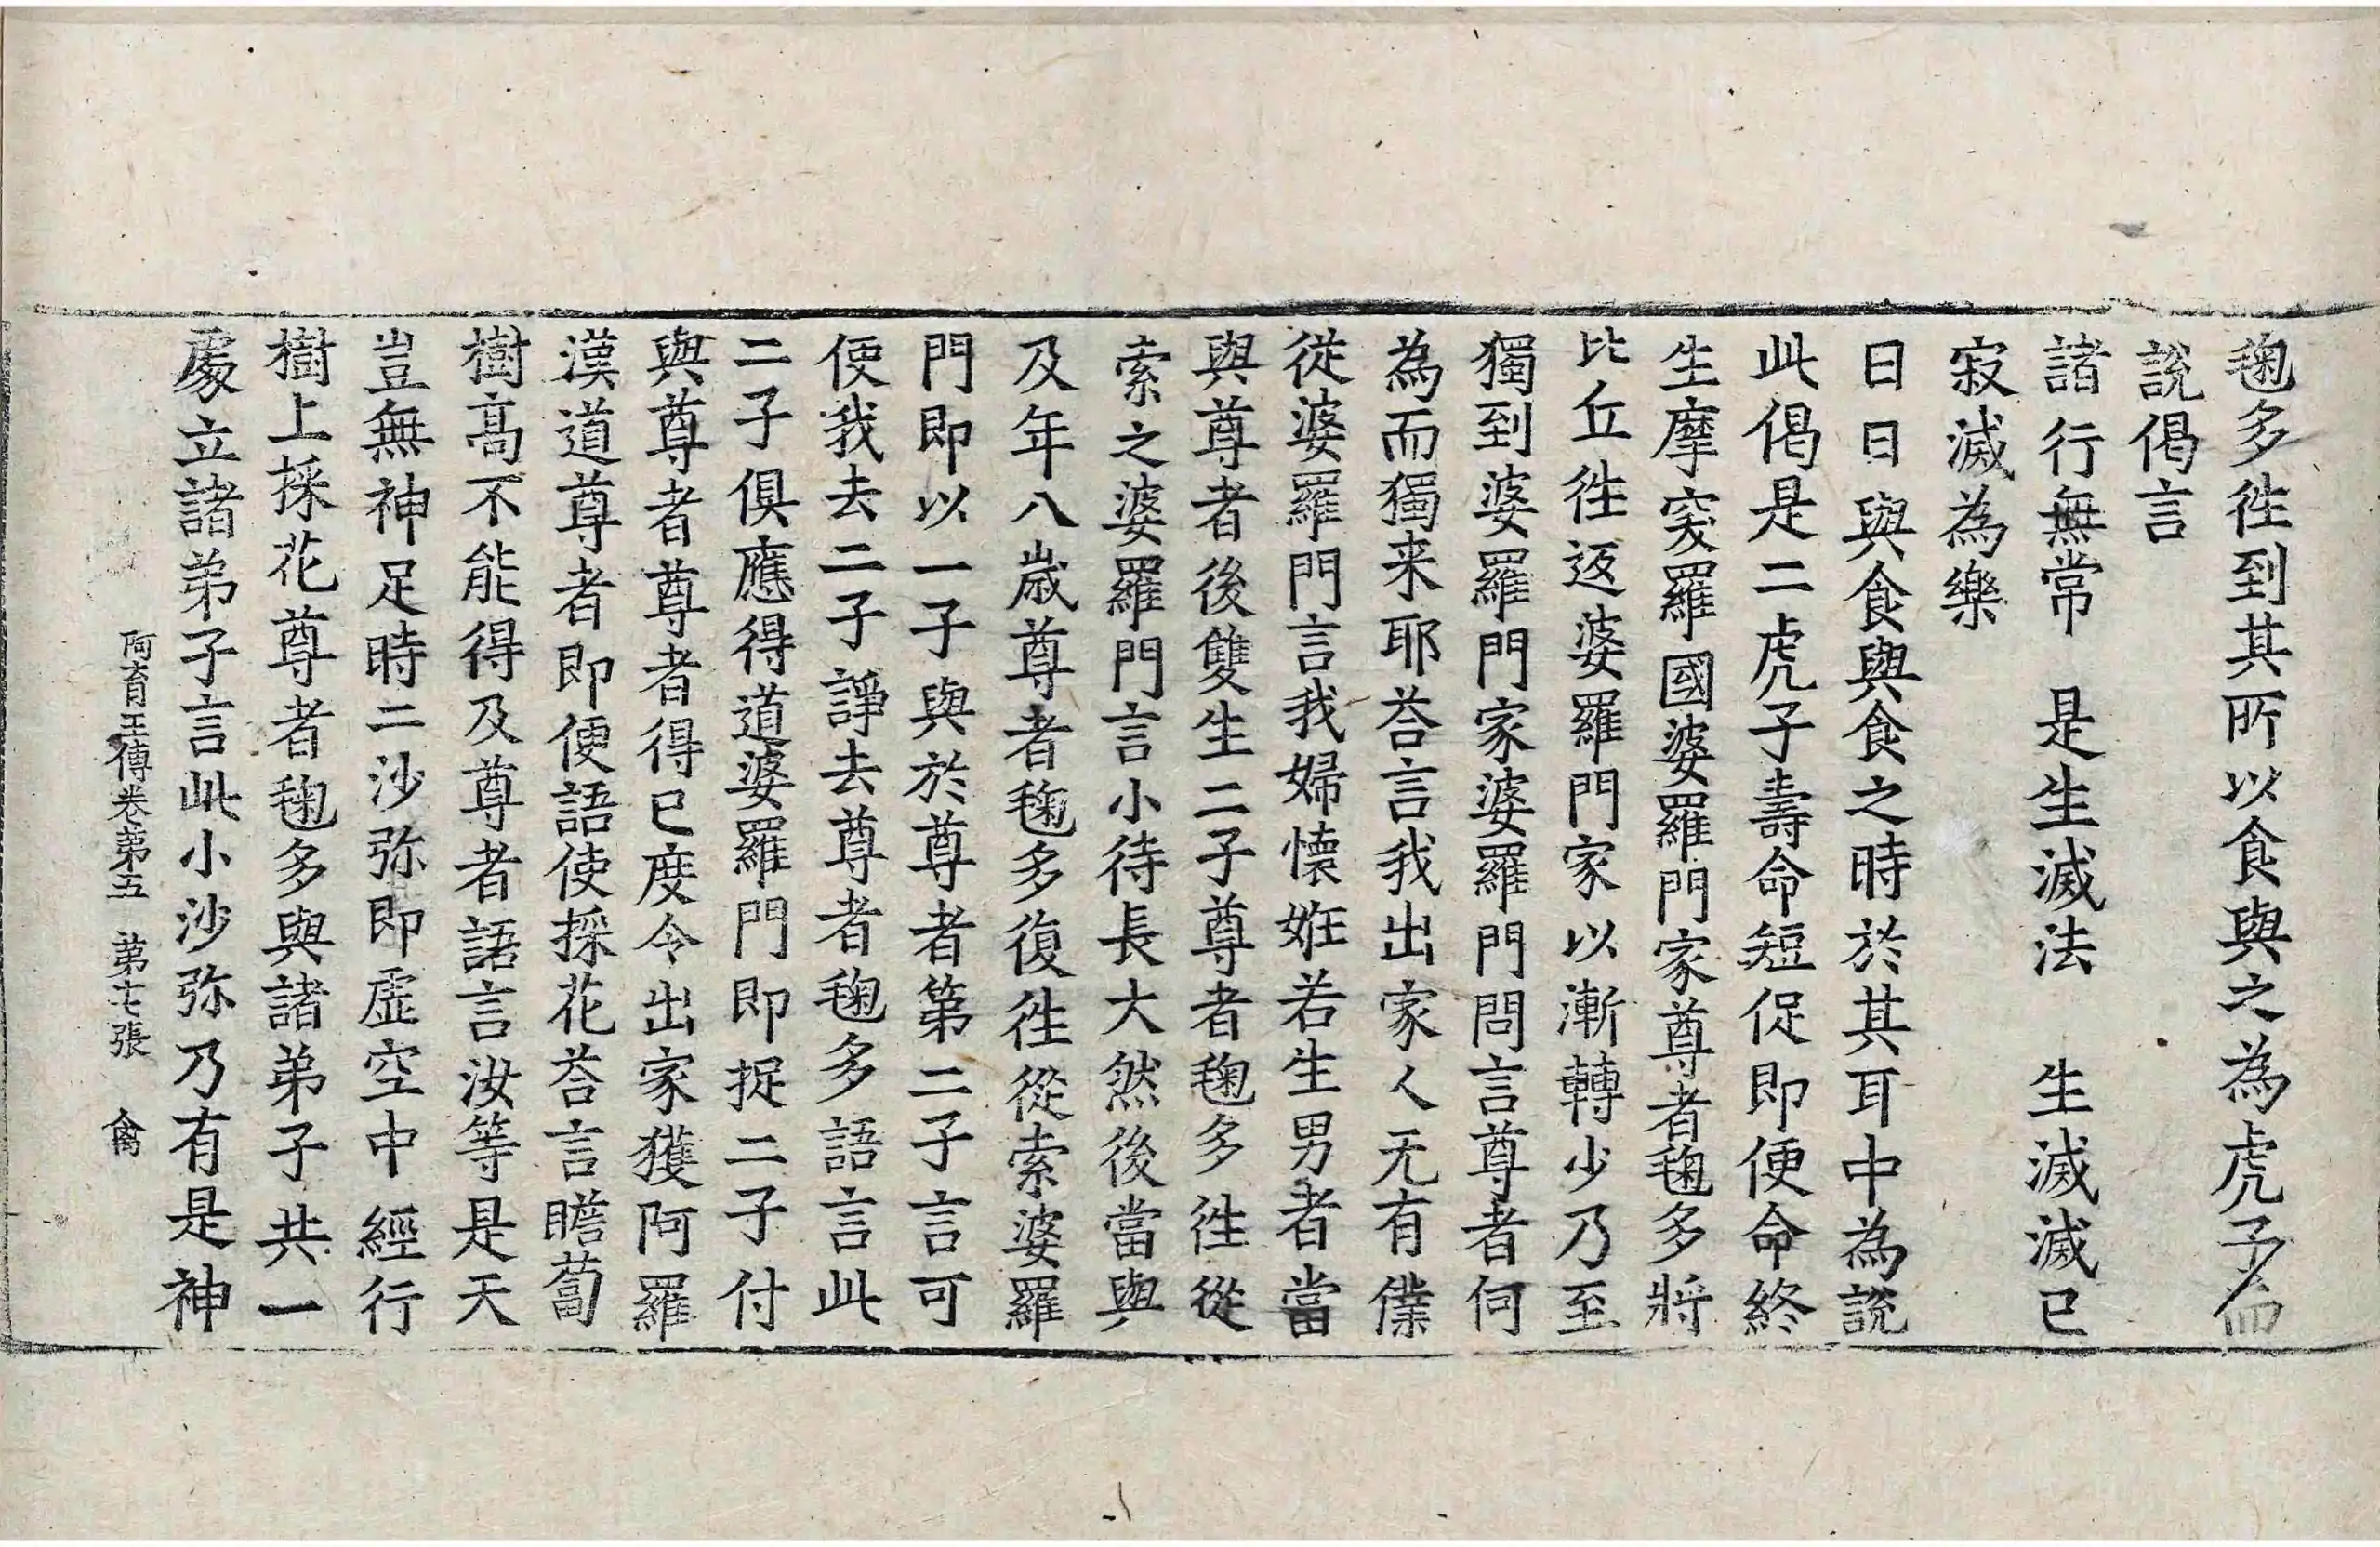 毱多徃到其所以食與之為虎子而
說偈言
諸行無常　是生滅法　生滅滅已
寂滅為樂
日日與食與食之時於其耳中為說
此偈是二虎子壽命短促即便命終
生摩突羅國婆羅門家尊者毱多將
比丘徃返婆羅門家以漸轉少乃至
獨到婆羅門家婆羅門問言尊者何
為而獨来耶荅言我出家人无有僕
從婆羅門言我婦懷姙若生男者當
與尊者後雙生二子尊者毱多徃從
索之婆羅門言小待長大然後當與
及年八歲尊者毱多復徃從索婆羅
門即以一子與於尊者第二子言可
便我去二子諍去尊者毱多語言此
二子俱應得道婆羅門即捉二子付
與尊者尊者得已度令出家獲阿羅
漢道尊者即便語使採花荅言瞻蔔
樹高不能得及尊者語言汝等是天
豈無神足時二沙弥即虛空中經行
樹上採花尊者毱多與諸弟子共一
處立諸弟子言此小沙弥乃有是神
阿育王傳卷苐五　苐七張　禽